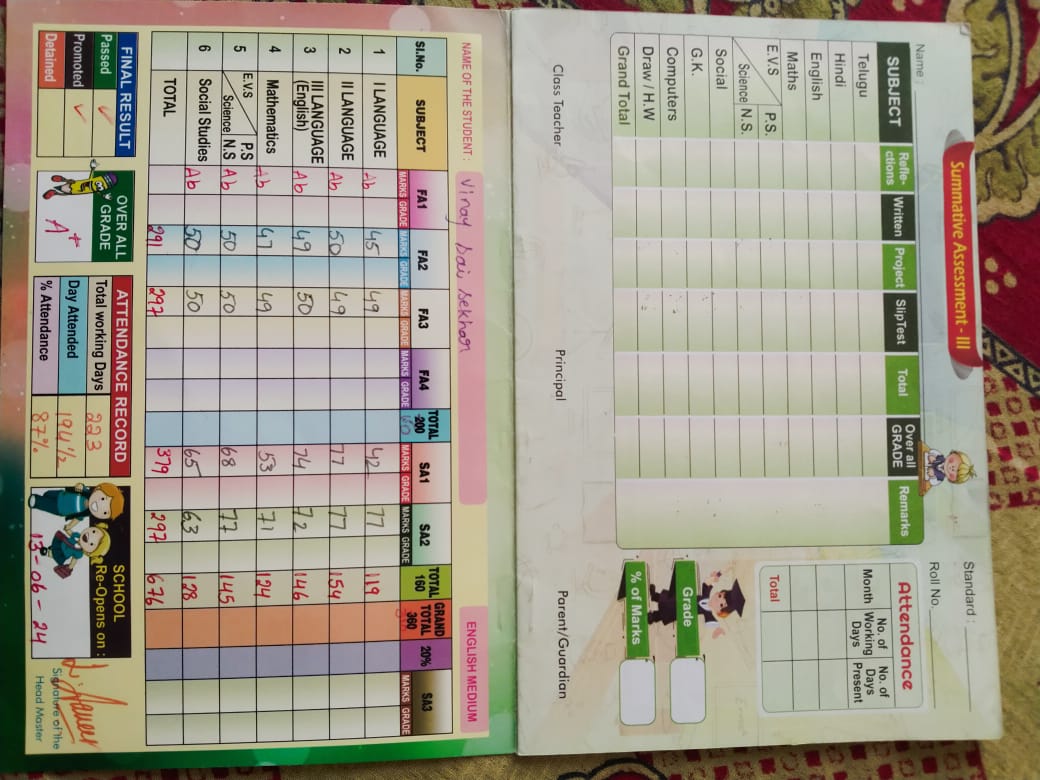 Summative Assessment - III
Name : Standard :
Roll No.
SUBJECT Refle-ctions Written Project SlipTest Total Over all GRADE Remarks
Telugu
Hindi
English
Maths
E.V.S P.S.
Science N.S.
Social
G.K.
Computers
Draw / H.W
Grand Total
Attendance
Month No. of Working Days No. of Days Present
Total
Grade
% of Marks
Class Teacher Principal Parent/Guardian
NAME OF THE STUDENT : Vinay sai sekhar ENGLISH MEDIUM
Sl.No. SUBJECT FA1 FA2 FA3 FA4 TOTAL 200 SA1 SA2 TOTAL 160 GRAND TOTAL 360 20% SA3
MARKS GRADE MARKS GRADE MARKS GRADE MARKS GRADE MARKS GRADE MARKS GRADE MARKS GRADE
1 I LANGUAGE Ab 45 49 42 77 119
2 II LANGUAGE Ab 50 49 77 77 154
3 III LANGUAGE (English) Ab 49 50 74 72 146
4 Mathematics Ab 47 49 53 71 124
5 E.V.S Science P.S N.S Ab 50 50 68 77 145
6 Social Studies Ab 50 50 65 63 128
TOTAL 291 297 379 297 676
FINAL RESULT
Passed ✓
Promoted ✓
Detained
OVER ALL GRADE
A+
ATTENDANCE RECORD
Total working Days 223
Day Attended 194 1/2
% Attendance 87%
SCHOOL Re-Opens on :
13-06-24
Signature of the
Head Master